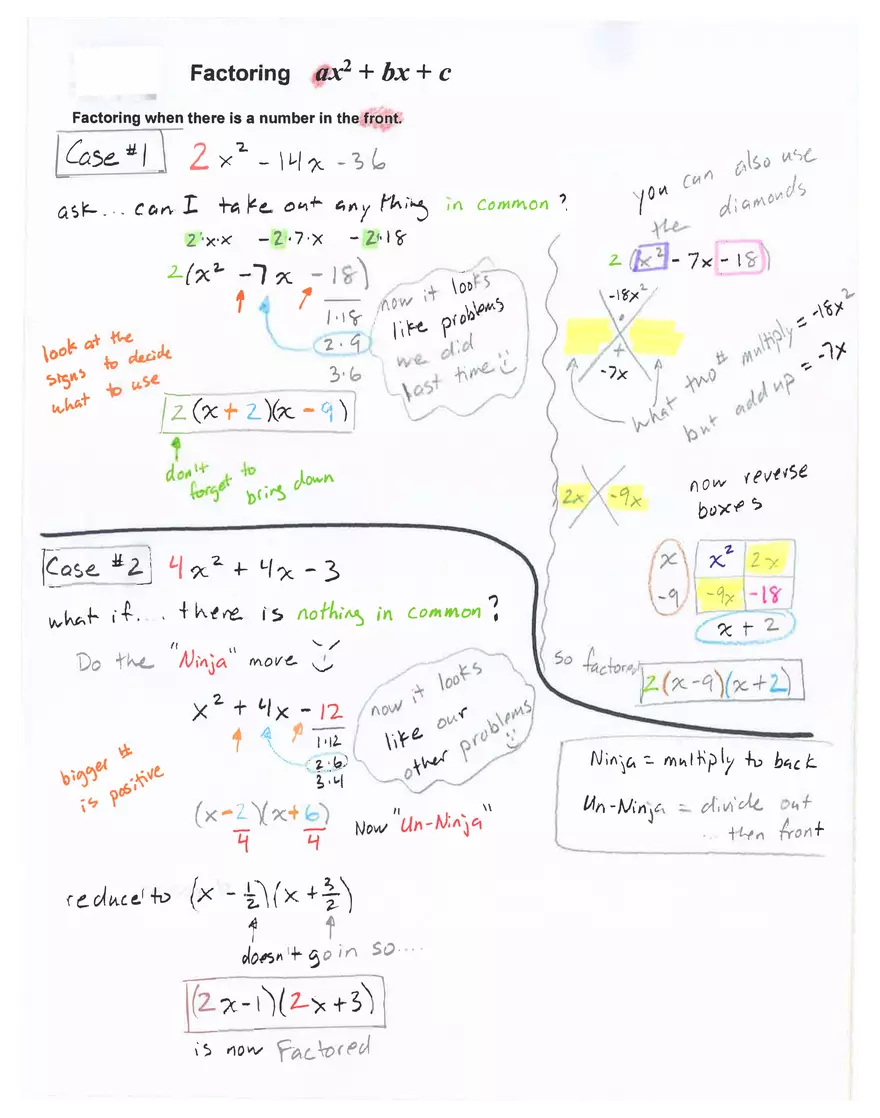 Factoring ax² + bx + c
Factoring when there is a number in the front.
Case #1 2x² - 14x - 36
ask... can I take out any thing in common?
2·x·x - 2·7·x - 2·18
2(x² - 7x - 18)
1·18
2·9
3·6
now it looks
like problems
we did
last time
look at the
signs to decide
what to use
2(x + 2)(x - 9)
don't
forget to
bring down
you can also use
the diamonds
2(x² - 7x - 18)
-18x²
·
+
-7x
what two # multiply = -18x²
but add up = -7x
2x -9x
now reverse
boxes
x x² 2x
-9 -9x -18
x + 2
so factored 2(x-9)(x+2)
Case #2 4x² + 4x - 3
what if.... there is nothing in common?
Do the "Ninja" move
x² + 4x - 12
1·12
2·6
3·4
now it looks
like our
other problems
bigger #
is positive
(x-2)(x+6) Now "Un-Ninja"
4 4
reduce to (x - 1/2)(x + 3/2)
doesn't go in so....
(2x-1)(2x+3)
is now Factored
Ninja = multiply to back
Un-Ninja = divide out
... then front